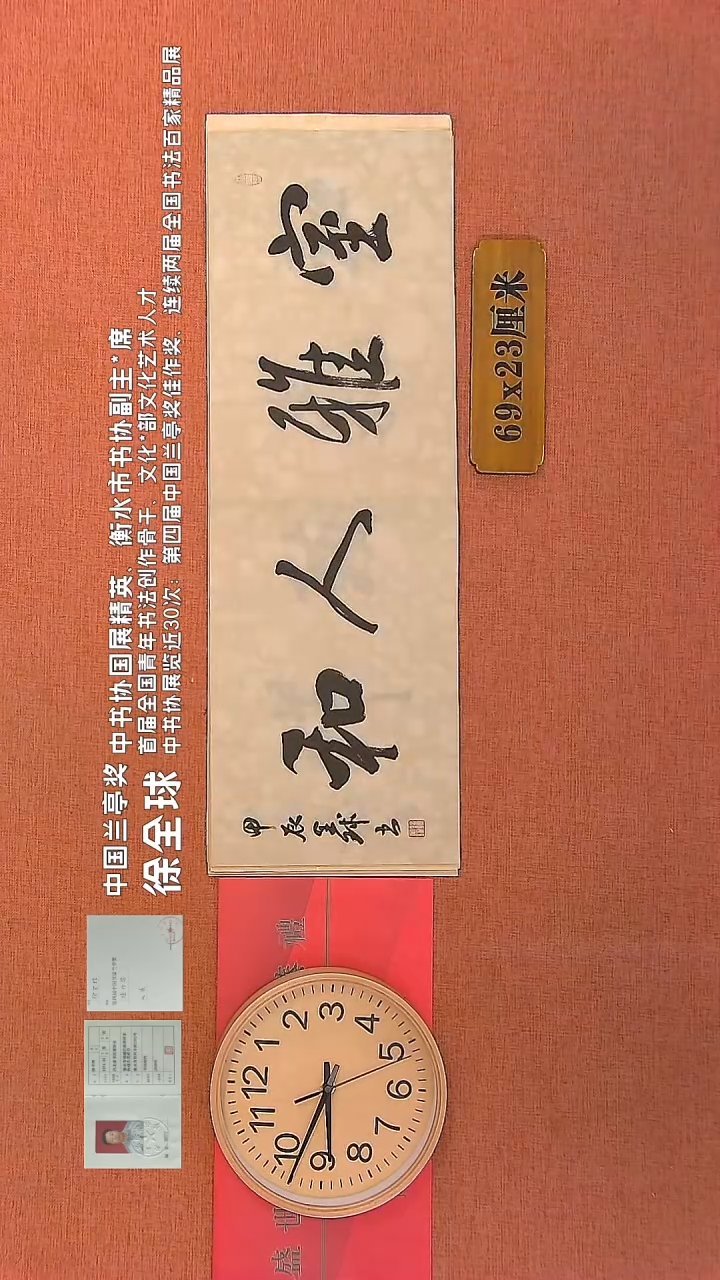 中国兰亭奖 中书协国展精英、衡水市书协副主*席
徐全球
首届全国青年书法创作骨干、文化*部文化艺术人才
中书协展览近30次：第四届中国兰亭奖佳作奖、连续两届全国书法百家精品展
室雅人和
甲辰全球书
69x23厘米
盛世
禮
12 1 2 3 4 5 6 7 8 9 10 11